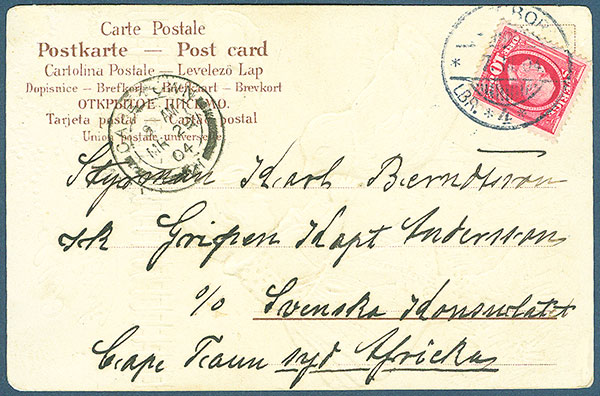 Carte Postale
Postkarte — Post card
Cartolina Postale — Levelező Lap
Dopisnice — Brefkort — Briefkaart — Brevkort
ОТКРЫТОЕ ПИСЬМО.
Tarjeta postal — Cartão postal
Union postale universelle
10
LBR. * 4 *
MR 29
04
Styrman Karl Berndtsson
sk Gripen Kapt Andersson
c/o Svenska Konsulatet
Cape Taun syd Africka